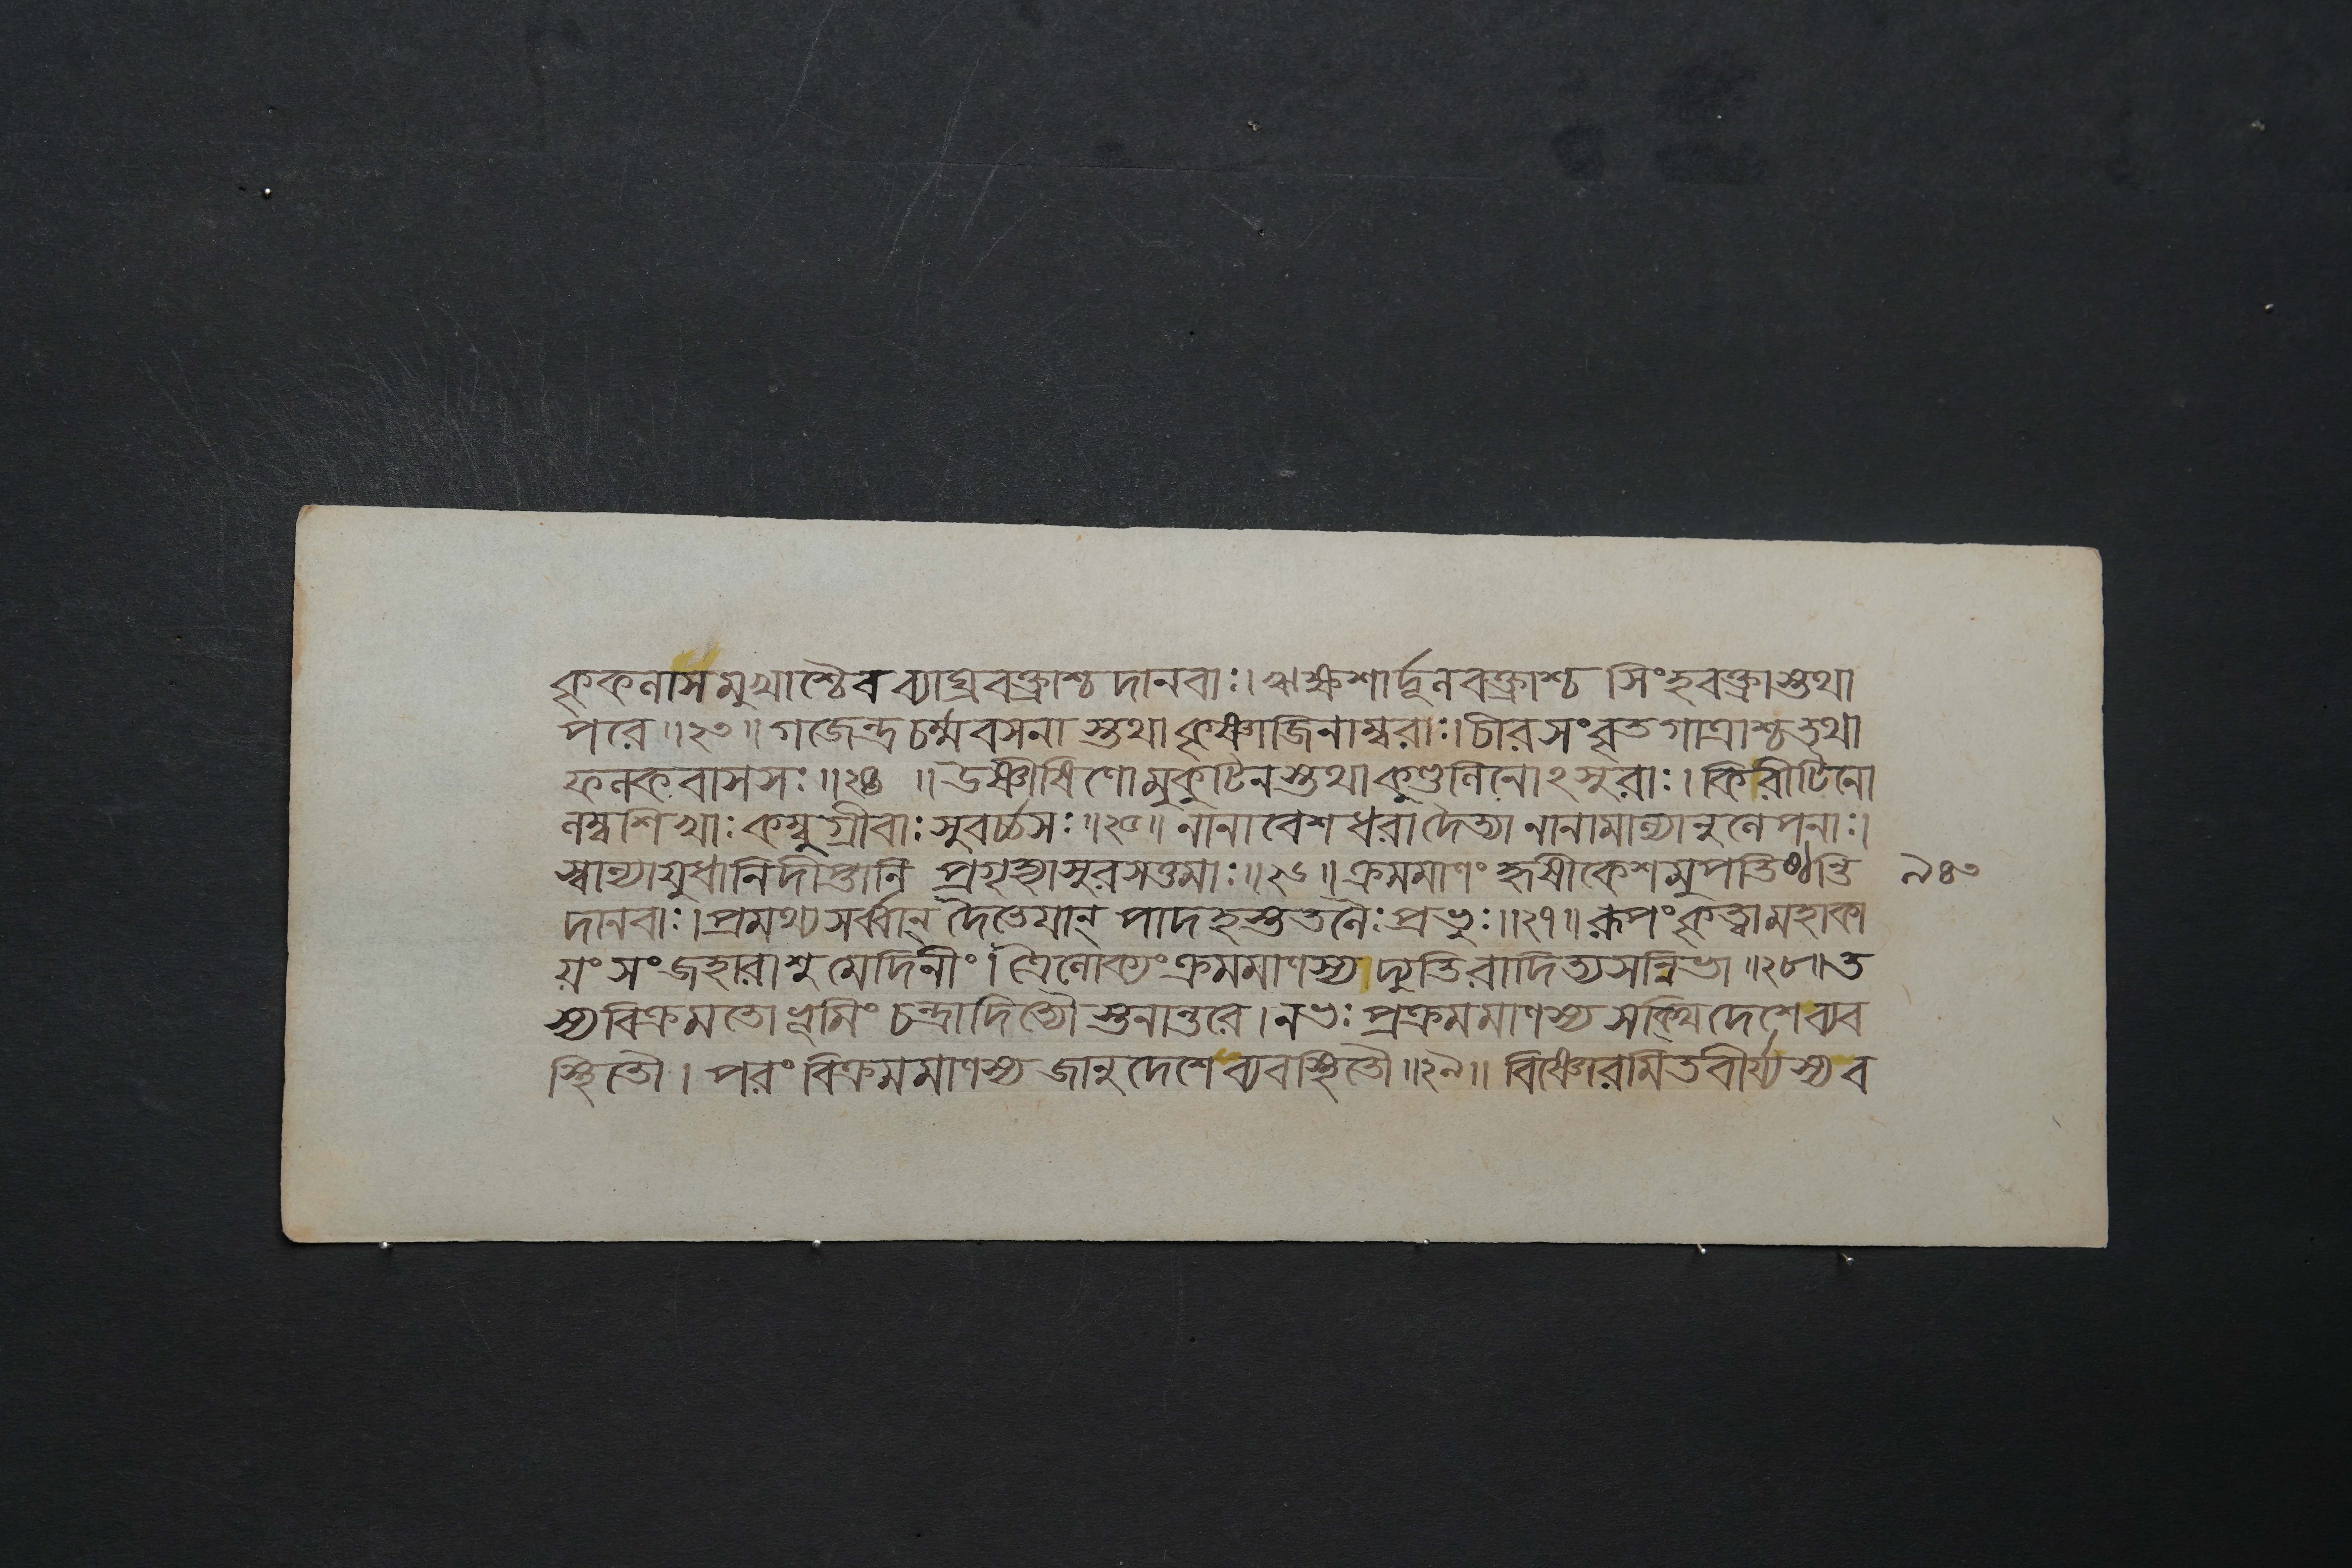 কৃকলাসমুখাশ্চৈব ব্যাঘ্রবক্ত্রাশ্চ দানবাঃ। ঋক্ষশার্দ্দূলবক্ত্রাশ্চ সিংহবক্ত্রাস্তথা
পরে ॥২৩॥ গজেন্দ্রচর্ম্মবসনা স্তথা কৃষ্ণাজিনাম্বরাঃ। চীরসংবৃতগাত্রাশ্চ তথা
ফলকবাসসঃ ॥২৪ ॥ উষ্ণীষিণো মুকুটিনস্তথা কুণ্ডলিনোঽসুরাঃ। কিরীটিনো
লম্বশিখাঃ কম্বুগ্রীবাঃ সুবর্চ্চসঃ ॥২৫॥ নানাবেশধরা দৈত্যা নানামাল্যানুলেপনাঃ।
স্বান্যায়ুধানি দীপ্তানি প্রগৃহ্যাসুরসত্তমাঃ ॥২৬॥ ক্রমমাণং হৃষীকেশমুপতিষ্ঠন্তি ৯৪৩
দানবাঃ। প্রমথ্য সর্ব্বান্ দৈতেয়ান্ পাদহস্ততলৈঃ প্রভুঃ ॥২৭॥ রূপং কৃত্বা মহাকা
য়ং সংজহারাশু মেদিনীং। ত্রৈলোক্যং ক্রমমাণস্য দ্যুতিরাদিত্যসন্নিভা ॥২৮॥ ত
স্য বিক্রমতো ভূমিং চন্দ্রাদিত্যৌ স্তনান্তরে। নভঃ প্রক্রমমাণস্য সক্থিদেশে ব্যব
স্থিতৌ। পরং বিক্রমমাণস্য জানুদেশে ব্যবস্থিতৌ ॥২৯॥ বিষ্ণোরমিতবীর্য্যস্য ব